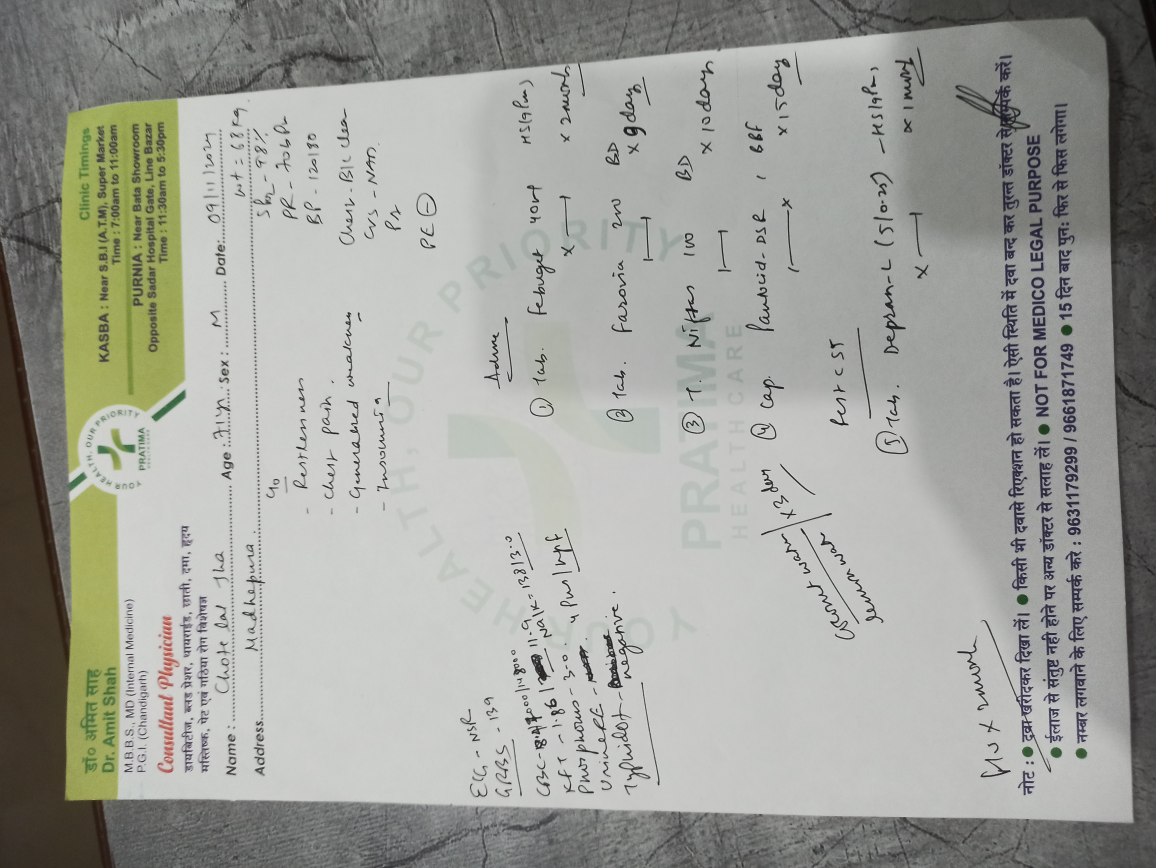 डॉ० अमित साह
Dr. Amit Shah
M.B.B.S., MD (Internal Medicine)
P.G.I. (Chandigarh)
Consultant Physician
डायबिटीज, ब्लड प्रेशर, थायराईड, छाती, दमा, हृदय
मस्तिष्क, पेट एवं गठिया रोग विशेषज्ञ
YOUR HEALTH, OUR PRIORITY
PRATIMA
Clinic Timings
KASBA : Near S.B.I (A.T.M), Super Market
Time : 7:00am to 11:00am
PURNIA : Near Bata Showroom
Opposite Sadar Hospital Gate, Line Bazar
Time : 11:30am to 5:30pm
Name : Chote lal Jha Age : 71y Sex : M Date: 09/11/2024
Address Madhepura wt = 68 kg
C/o
- Restlessness
- Chest pain.
- Generalised weakness
- Insomnia
SPO2 - 98%
PR - 70bPm
BP - 120/80
Chest - B/L clear
CVS - NAD
PE ⊖
ECG - NSR
GRBS - 139
KFT - 1.86 / 11.9
Na/K = 138/3.0
Phosphorus - 3.0.
Urine RE - 4 Pus/hpf
Typhidot - negative.
Advice
① Tab. Febuget 40mg HS(9Pm)
x 2month
② Tab. Faronia 200 BD
x 9day
③ T. 100 BD
x 10days
④ Cap. Pantocid-DSR 1 BBF
x 15day
x 3day
Rest CST
⑤ Tab. Depran-L (5/0.25) - HS(9Pm)
x 1month
YOUR HEALTH, OUR PRIORITY
PRATIMA
HEALTH CARE
नोट : ● दवा खरीदकर दिखा लें। ● किसी भी दवासे रिएक्शन हो सकता है। ऐसी स्थिति में दवा बन्द कर तुरन्त डॉक्टर से सम्पर्क करें।
● ईलाज से संतुष्ट नही होने पर अन्य डॉक्टर से सलाह लें। ● NOT FOR MEDICO LEGAL PURPOSE
● नम्बर लगवाने के लिए सम्पर्क करे : 9631179299 / 9661871749 ● 15 दिन बाद पुन: फिर से फिस लगेगा।